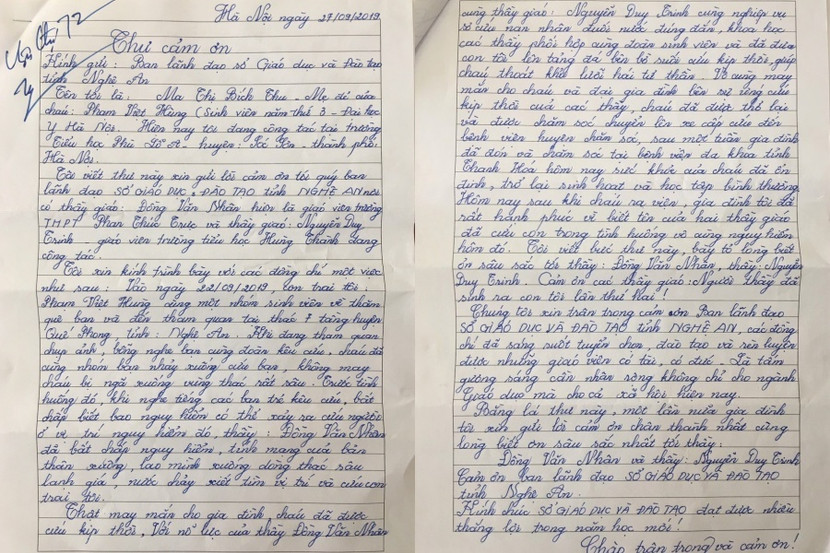 Hà Nội ngày 27/09/2019
Thư cảm ơn
Kính gửi: Ban lãnh đạo sở Giáo dục và Đào tạo
tỉnh Nghệ An
Tên tôi là: Ma Thị Bích Thu - Mẹ đẻ của
cháu: Phạm Việt Hưng (Sinh viên năm thứ 3 - Đại học
Y Hà Nội. Hiện nay tôi đang công tác tại trường
Tiểu học Phù Lỗ A - huyện: Sóc Sơn - thành phố:
Hà Nội.
Tôi viết thư này xin gửi lời cảm ơn tới quý ban
lãnh đạo SỞ GIÁO DỤC & ĐÀO TẠO tỉnh NGHỆ AN nơi
có thầy giáo: Đồng Văn Nhân hiện là giáo viên trường
THPT Phan Thúc Trực và thầy giáo: Nguyễn Duy
Trinh - giáo viên trường tiểu học Hưng Thành đang
công tác.
Tôi xin kính trình bày với các đồng chí một việc
như sau: Vào ngày 22/09/2019, con trai tôi:
Phạm Việt Hưng cùng một nhóm sinh viên về thăm
quê bạn và đến thăm quan tại thác 7 tầng huyện
Quế Phong, tỉnh: Nghệ An. Khi đang thăm quan
chụp ảnh, bỗng nghe bạn cùng đoàn kêu cứu, cháu đã
cùng nhóm bạn nhảy xuống cứu bạn, không may
cháu bị ngã xuống vùng thác rất sâu. Trước tình
huống đó, khi nghe tiếng các bạn trẻ kêu cứu, bất
chấp biết bao nguy hiểm có thể xảy ra cứu người
ở vị trí nguy hiểm đó, thầy: Đồng Văn Nhân
đã bất chấp nguy hiểm, tính mạng của bản
thân xuống, lao mình xuống dòng thác sâu
lạnh giá, nước chảy xiết tiến vị trí và cứu con
trai tôi.
Thật may mắn cho gia đình, cháu đã được
cứu kịp thời, Với nỗ lực của thầy Đồng Văn Nhân
cùng thầy giáo: Nguyễn Duy Trinh cùng nghiệp vụ
sơ cứu nạn nhân đuối nước đúng đắn, khoa học
các thầy phối hợp cùng đoàn sinh viên và đã đưa
con tôi lên tảng đá bên bờ suối cứu kịp thời, giúp
cháu thoát khỏi lưỡi hái tử thần. Vô cùng may
mắn cho cháu và đại gia đình bên sự ứng cứu
kịp thời của các thầy, cháu đã được thở lại
và được chăm sóc chuyển lên xe cấp cứu đến
bệnh viện huyện chăm sóc, sau một tuần gia đình
đã đón và chăm sóc tại bệnh viện đa khoa tỉnh
Thanh Hóa hôm nay sức khỏe của cháu đã ổn
định, trở lại sinh hoạt và học tập bình thường.
Hôm nay sau khi cháu ra viện, gia đình tôi đã
rất hạnh phúc vì biết tên của hai thầy giáo
đã cứu con trong tình huống vô cùng nguy hiểm
hôm đó. Tôi viết bức thư này, bày tỏ lòng biết
ơn sâu sắc tới thầy: Đồng Văn Nhân, thầy: Nguyễn
Duy Trinh. Cảm ơn các thầy giáo: Người Thầy đã
sinh ra con tôi lần thứ hai!
Chúng tôi xin trân trọng cảm ơn Ban lãnh đạo
SỞ GIÁO DỤC VÀ ĐÀO TẠO tỉnh NGHỆ AN, các đồng
chí đã sáng suốt tuyển chọn, đào tạo và rèn luyện
được những giáo viên có tài, có đức - Là tấm
gương sáng cần nhân rộng không chỉ cho ngành
Giáo dục mà cho cả xã hội hiện nay.
Bằng lá thư này, một lần nữa gia đình
tôi xin gửi lời cảm ơn chân thành nhất cùng
lòng biết ơn sâu sắc nhất tới thầy:
Đồng Văn Nhân và thầy: Nguyễn Duy Trinh
Cảm ơn ban lãnh đạo SỞ GIÁO DỤC VÀ ĐÀO TẠO
tỉnh Nghệ An.
Kính chúc SỞ GIÁO DỤC VÀ ĐÀO TẠO đạt được nhiều
thắng lợi trong năm học mới!
Chào trân trọng và cảm ơn!